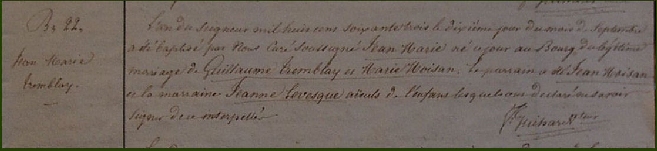 B. 22.
Jean Marie
tremblay.
L'an du Seigneur mil huit cens soixante trois le Dixième jour du mois de Septembre
a été baptisé par Nous Curé soussigné Jean Marie né ce jour au Bourg du légitime
mariage de Guillaume tremblay et Marie Moisan. le parrain a été Jean Moisan
et la marraine Jeanne Levesque aïeuls de l'enfant lesquels ont declaré ne savoir
signer de ce interpellés